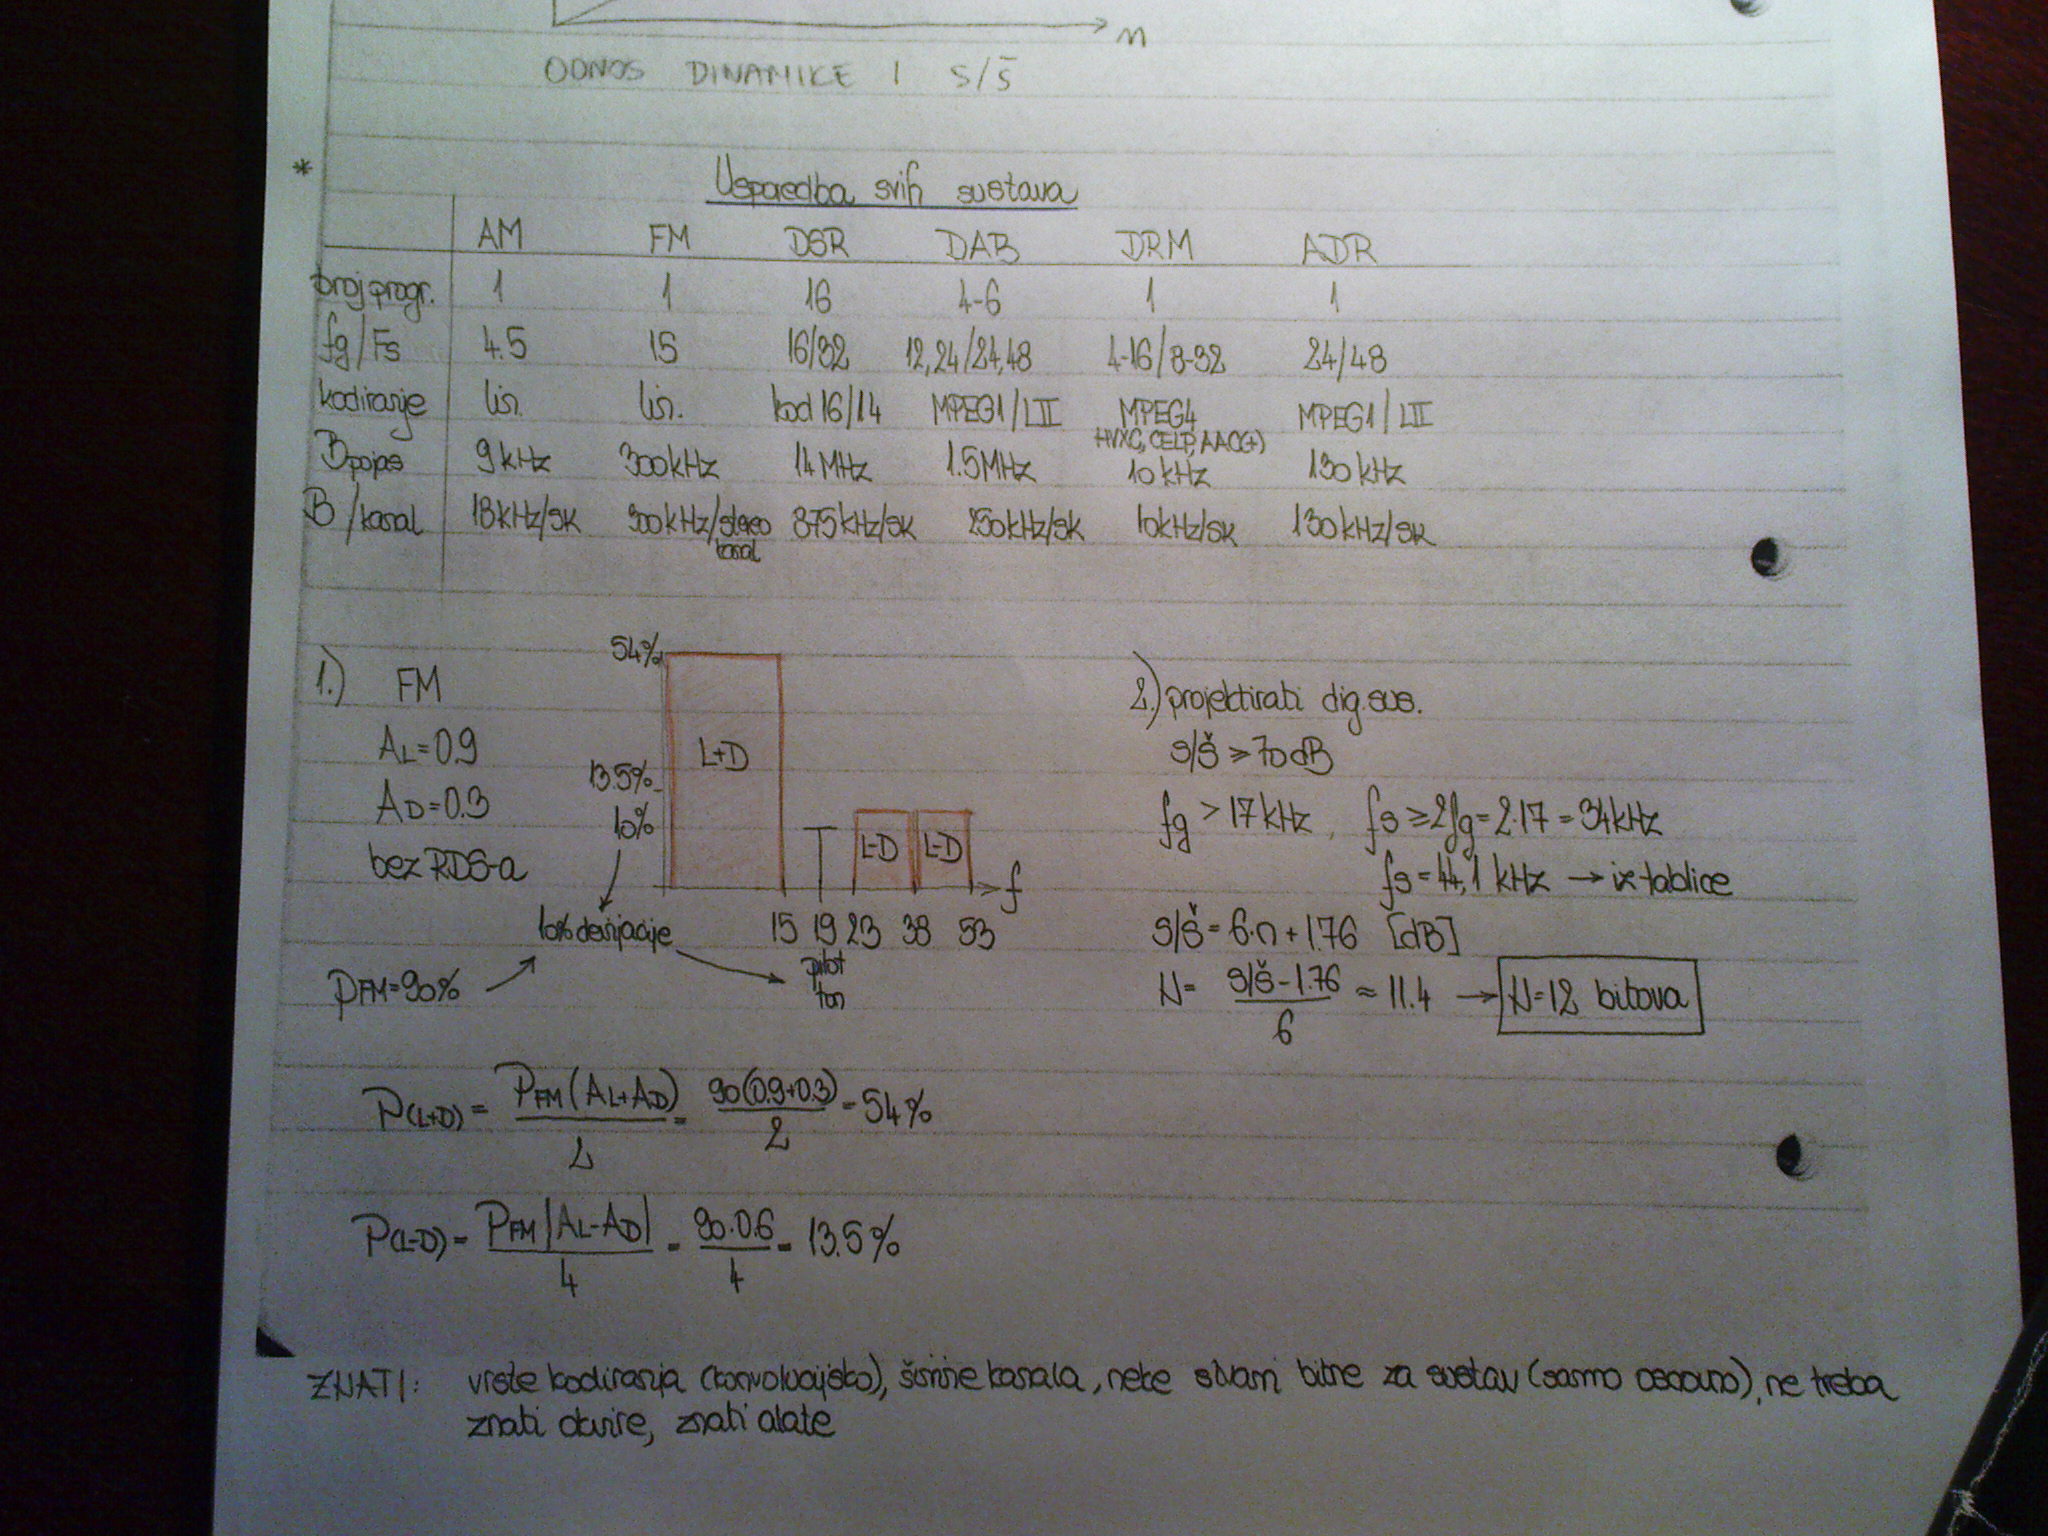 n
ODNOS DINAMIKE I S/Š
* Usporedba svih sustava
AM FM DSR DAB DRM ADR
broj progr. 1 1 16 4-6 1 1
fg/Fs 4.5 15 16/32 12,24/24,48 4-16/8-32 24/48
kodiranje lin. lin. kod 16/14 MPEG1/LII MPEG4 MPEG1/LII
HVXC, CELP, AAC(+)
Bpojas 9kHz 300kHz 14MHz 1.5MHz 10kHz 130kHz
B/kanal 18kHz/SK 300kHz/stereo kanal 875kHz/SK 250kHz/SK 10kHz/SK 130kHz/SK
1.) FM
AL=0.9
AD=0.3
bez RDS-a
54%
13.5%
10%
L+D
L-D L-D
f
15 19 23 38 53
pilot
ton
10% devijacije
PFM=90%
P(L+D) = PFM(AL+AD)/2 = 90(0.9+0.3)/2 = 54%
P(L-D) = PFM|AL-AD|/4 = 90·0.6/4 = 13.5%
2.) projektirati dig.sus.
S/Š ≥ 70dB
fg > 17kHz, fs ≥ 2fg = 2·17 = 34kHz
fs = 44,1 kHz → iz tablice
S/Š = 6·n + 1.76 [dB]
N = S/Š - 1.76/6 ≈ 11.4 → N=12 bitova
ZNATI: vrste kodiranja (konvolucijsko), širine kanala, neke stvari bitne za sustav (samo osnovno), ne treba
znati okvire, znati alate